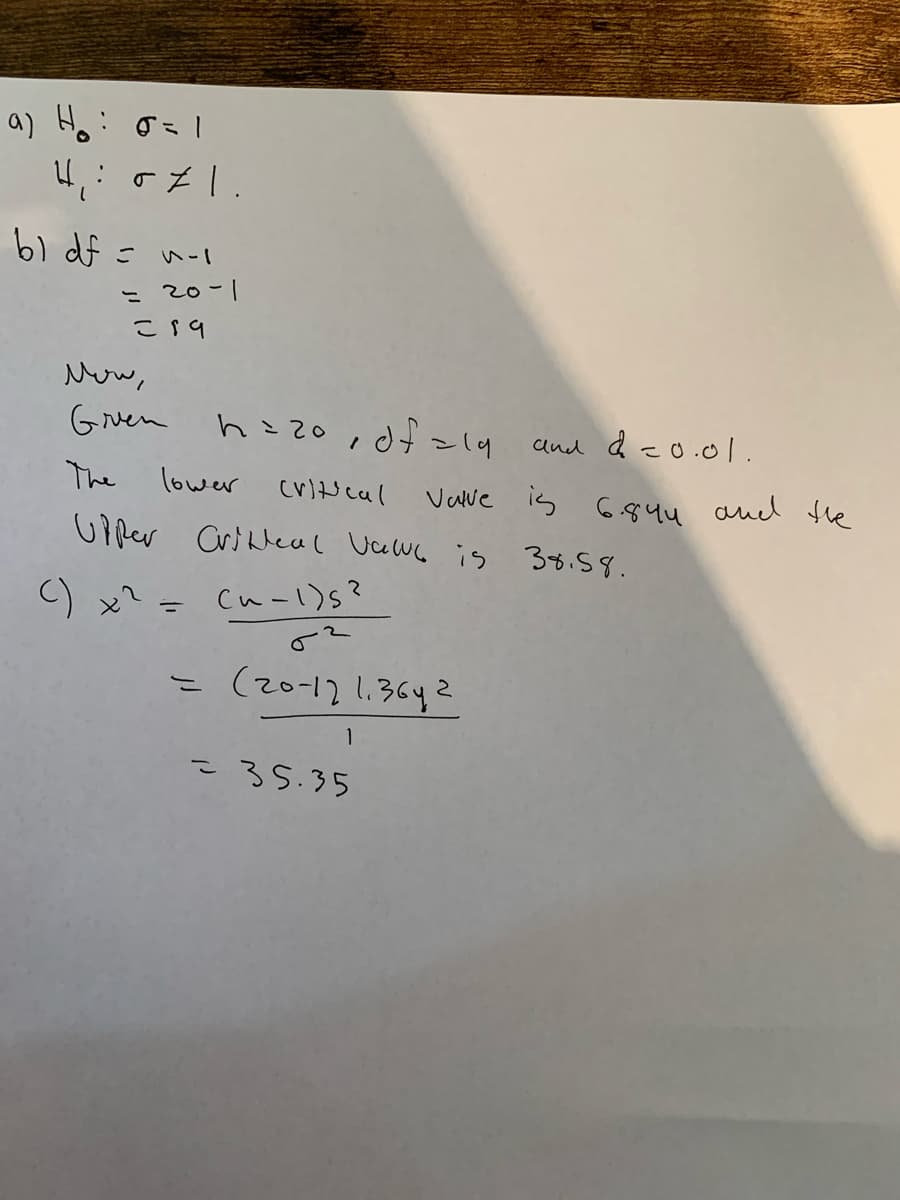 a) H₀: σ = 1
H₁: σ ≠ 1.
b) df = n-1
= 20-1
= 19
Now,
Given n = 20, df = 19 and α = 0.01.
The lower critical value is 6.844 and the
Upper Critical Value is 38.58.
c) x² = (n-1)s²
σ²
= (20-1) 1.364²
1
= 35.35